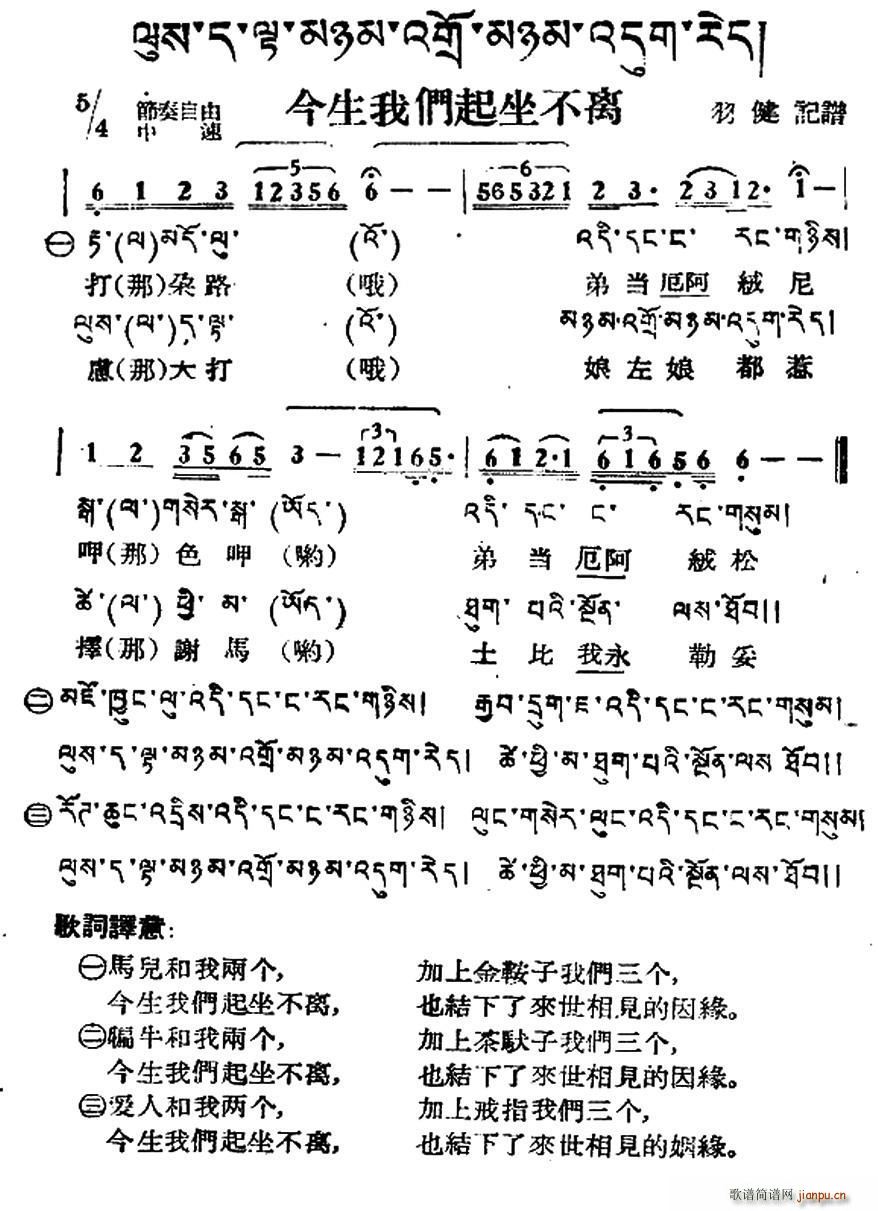 ལུས་ད་ལྟ་མཉམ་འགྲོ་མཉམ་འདུག་རེད།
5/4 節奏自由 中速 今生我們起坐不离 羽健 記譜
6 1 2 3 12356 6 — — | 565321 2 3· 2312· 1 — |
㊀ རྟ་(ལ)མདོ་ལུ་ (འོ་) འདི་དང་ང་ རང་གཉིས།
打(那)朶路 (哦) 弟當厄阿 絨尼
ལུས་(ལ་)ད་ལྟ་ (འོ་) མཉམ་འགྲོ་མཉམ་འདུག་རེད།
慮(那)大打 (哦) 娘左娘 都惹
| 1 2 35 65 3 — 12165· | 612·1 61656 6 — — ‖
སྒ་(ལ་)གསེར་སྒ་ (ཨོད་) འདི་ དང་ ང་ རང་གསུམ།
呷(那)色呷 (喲) 弟當厄阿 絨松
ཚེ་(ལ་) ཕྱི་ མ་ (ཨོད་) ཐུག་ པའི་སྔོན་ ལས་ཐོབ།།
擇(那)謝馬 (喲) 土比我永 勒妥
㊁ མཛོ་ཁྱུང་ལུ་འདི་དང་ང་རང་གཉིས། རྒྱབ་དྲུག་ཇ་འདི་དང་ང་རང་གསུམ།
ལུས་ད་ལྟ་མཉམ་འགྲོ་མཉམ་འདུག་རེད། ཚེ་ཕྱི་མ་ཐུག་པའི་སྔོན་ལས ཐོབ།།
㊂ རོཊ་ཆུང་འདྲིས་འདི་དང་ང་རང་གཉིས། ལུང་གསེར་ལུང་འདི་དང་ང་རང་གསུམ།
ལུས་ད་ལྟ་མཉམ་འགྲོ་མཉམ་འདུག་རེད། ཚེ་ཕྱི་མ་ཐུག་པའི་སྔོན་ལས་ཐོབ།།
歌詞譯意:
㊀馬兒和我兩个, 加上金鞍子我們三个,
今生我們起坐不离, 也結下了來世相見的因緣。
㊁犏牛和我兩个, 加上茶馱子我們三个,
今生我們起坐不离, 也結下了來世相見的因緣。
㊂愛人和我两个, 加上戒指我們三个,
今生我們起坐不离, 也結下了來世相見的姻緣。
歌谱简谱网 jianpu.cn